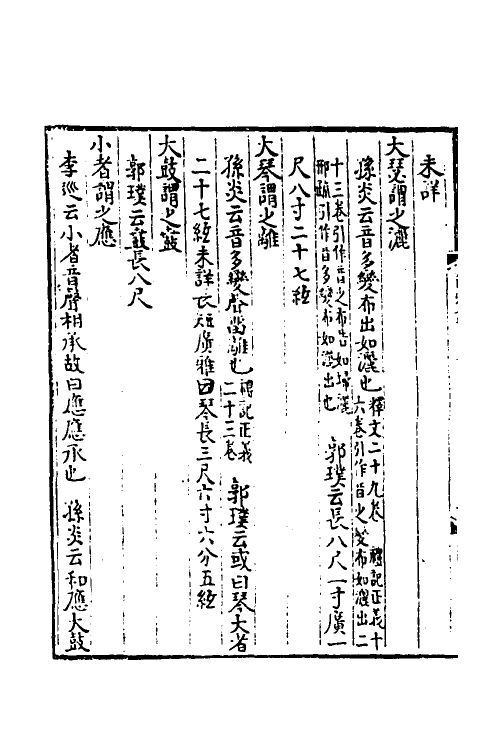 未詳
大瑟謂之灑
孫炎云音多變布出如灑也釋文二十九卷 禮記正義十
六卷引作音之變布如灑出二
十三卷引作音之布告如埽灑
邢疏引作音多變布如灑出也 郭璞云長八尺一寸廣一
尺八寸二十七絃
大琴謂之離
孫炎云音多變聲當離也禮記正義二十三卷 郭璞云或曰琴大者
二十七絃未詳長短廣雅曰琴長三尺六寸六分五絃
大鼓謂之鼖
郭璞云鼖長八尺
小者謂之應
李巡云小者音聲相承故曰應應承也 孫炎云和應大鼓